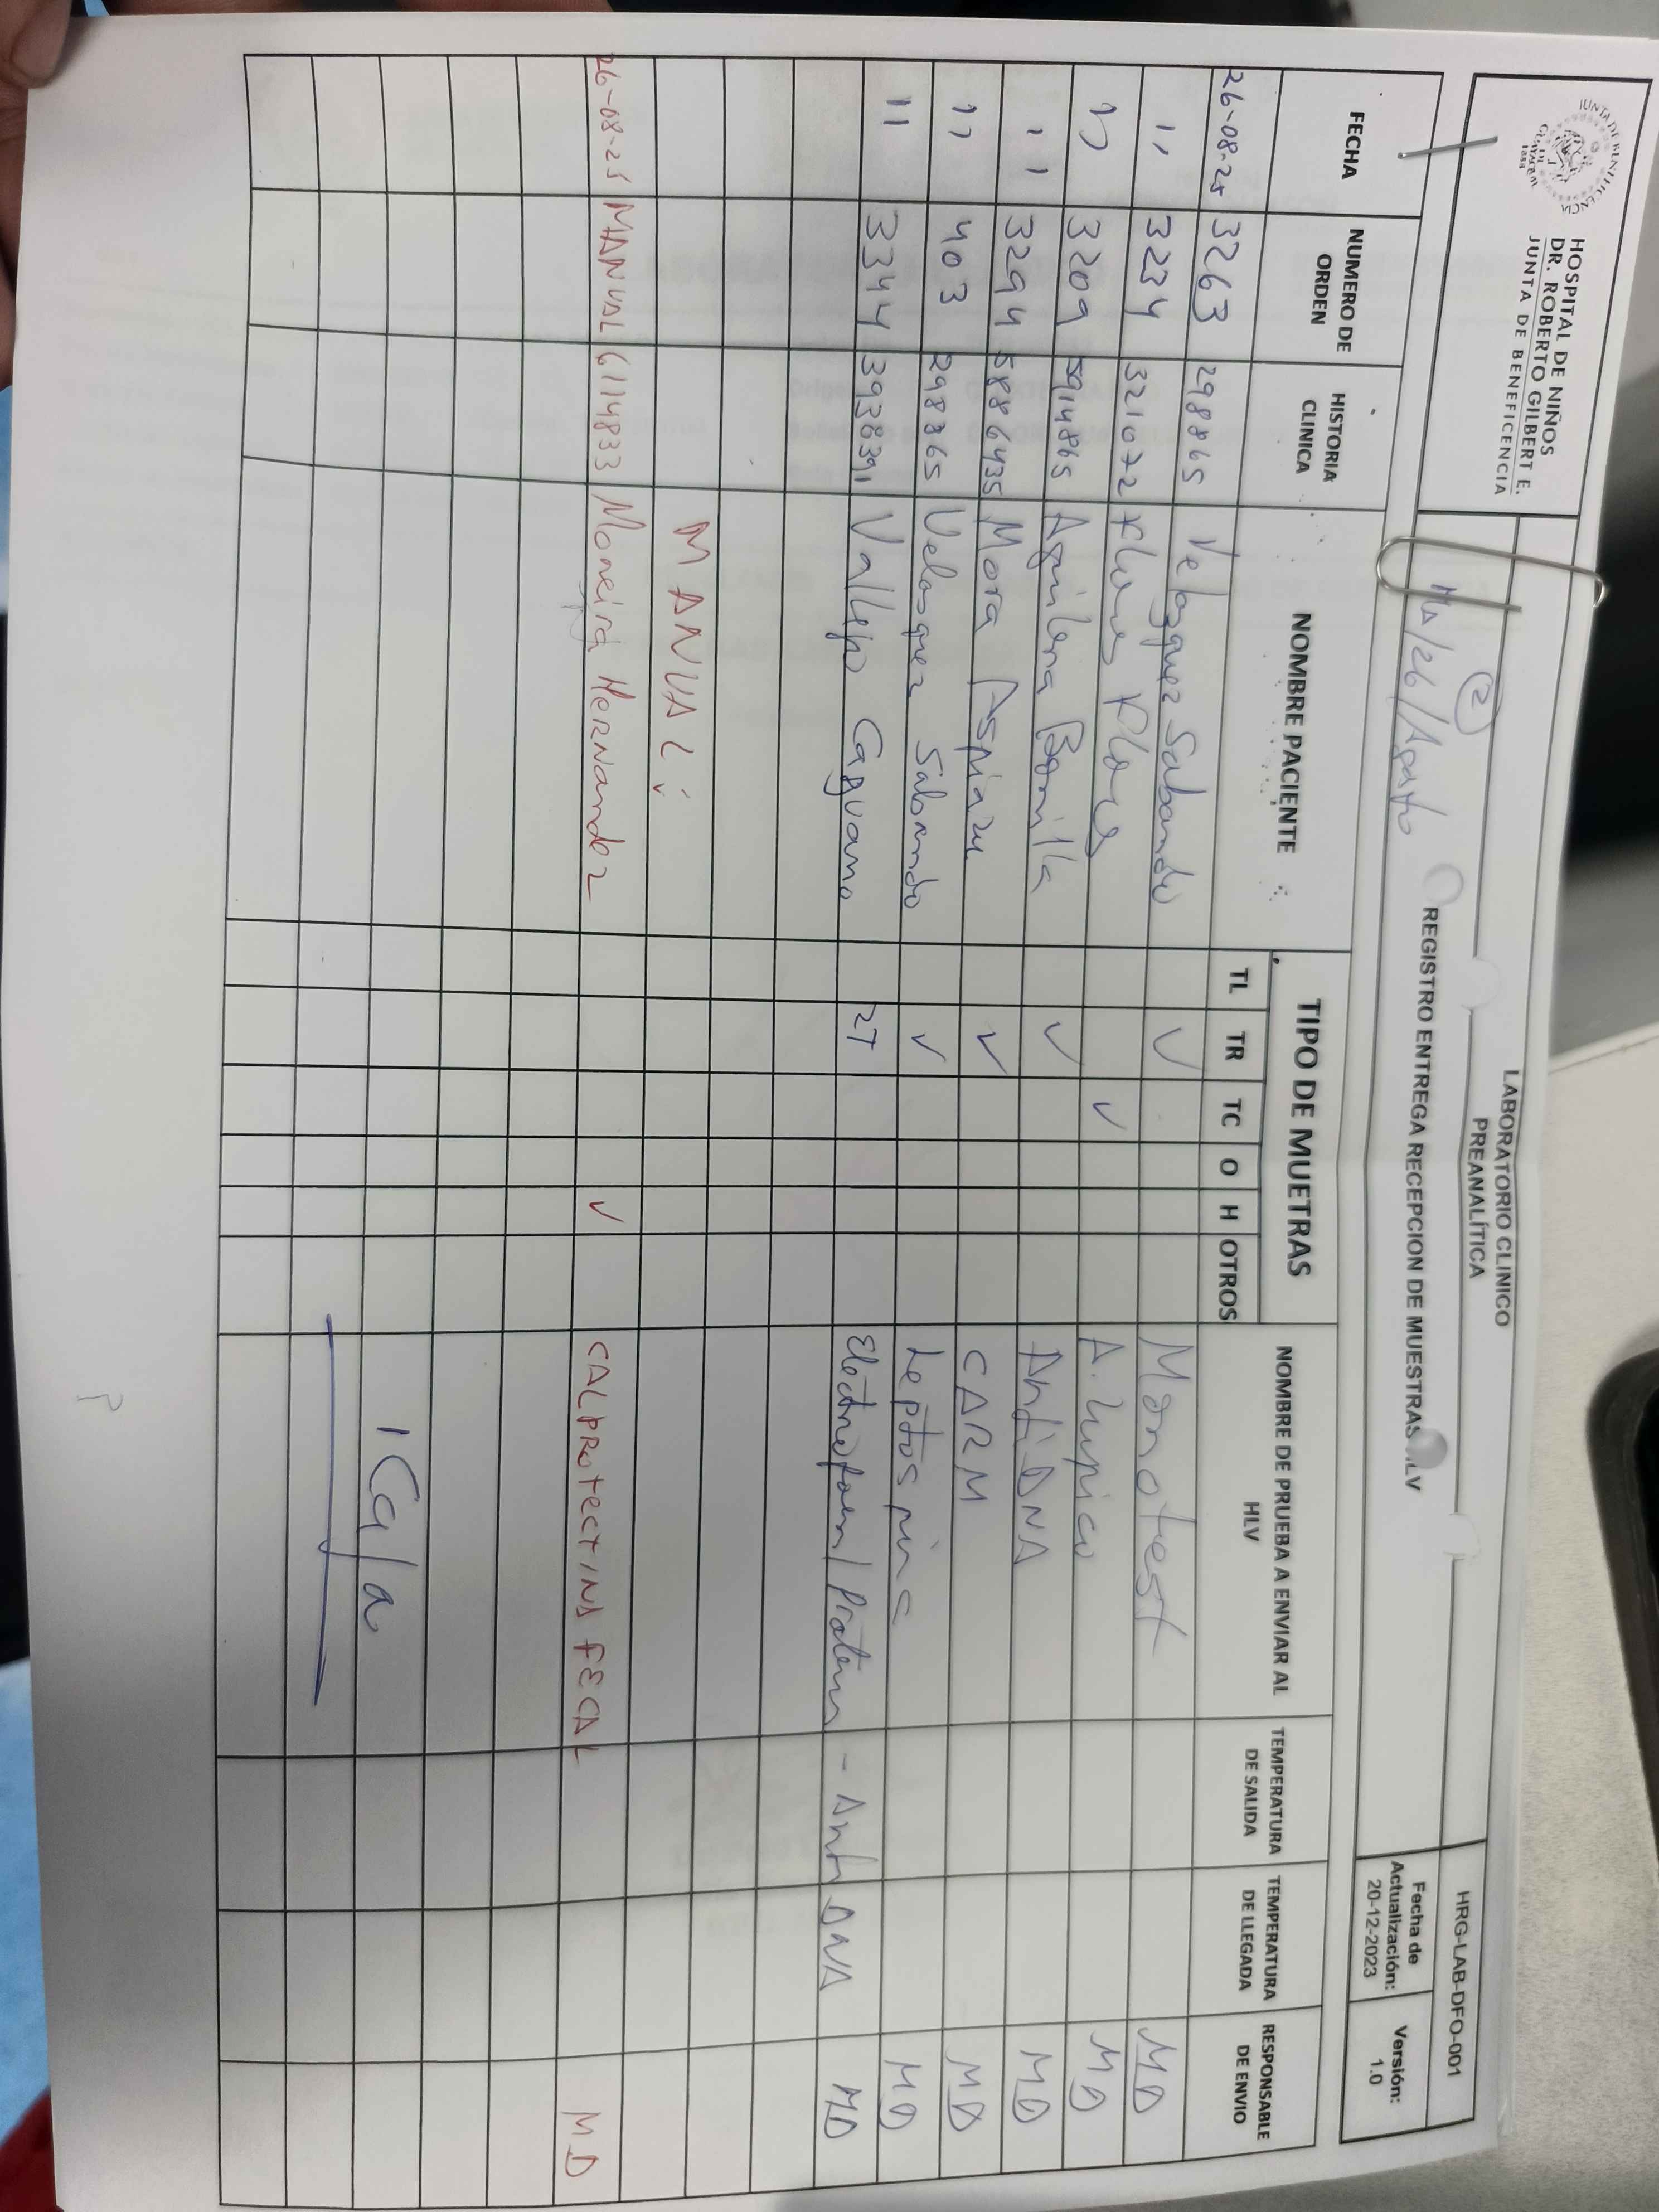 JUNTA DE BENEFICENCIA DE GUAYAQUIL 1888
HOSPITAL DE NIÑOS
DR. ROBERTO GILBERT E.
JUNTA DE BENEFICENCIA
LABORATORIO CLINICO
PREANALÍTICA
HRG-LAB-DFO-001
2
Ma/26/Agosto
REGISTRO ENTREGA RECEPCION DE MUESTRAS
Fecha de Actualización: 20-12-2023
Versión: 1.0
FECHA NUMERO DE ORDEN HISTORIA CLINICA NOMBRE PACIENTE TIPO DE MUETRAS NOMBRE DE PRUEBA A ENVIAR AL HLV TEMPERATURA DE SALIDA TEMPERATURA DE LLEGADA RESPONSABLE DE ENVIO
TL TR TC O H OTROS
26-08-25 3263 298865 Velasquez Sabando ✓ Monotest MD
11 3234 321072 Flores Flores ✓ A. Lupico MD
11 3209 5914865 Aguilera Bonilla ✓ Anti DNA MD
11 3294 5886435 Mora Aspiazu ✓ CARM MD
11 403 298865 Velasquez Sabando ✓ Leptospira MD
11 3344 3938391 Vallejo Caguana 2T / - Anti DNA MD
MANUAL:
26-08-25 MANUAL 6114833 Moreira Hernandez ✓ CALPROTECTINA FECAL MD